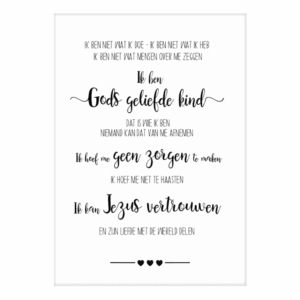 IK BEN NIET WAT IK DOE - IK BEN NIET WAT IK HEB
IK BEN NIET WAT MENSEN OVER ME ZEGGEN
Ik ben
Gods geliefde kind
DAT IS WIE IK BEN
NIEMAND KAN DAT VAN ME AFNEMEN
Ik hoef me geen zorgen te maken
IK HOEF ME NIET TE HAASTEN
Ik kan Jezus vertrouwen
EN ZIJN LIEFDE MET DE WERELD DELEN